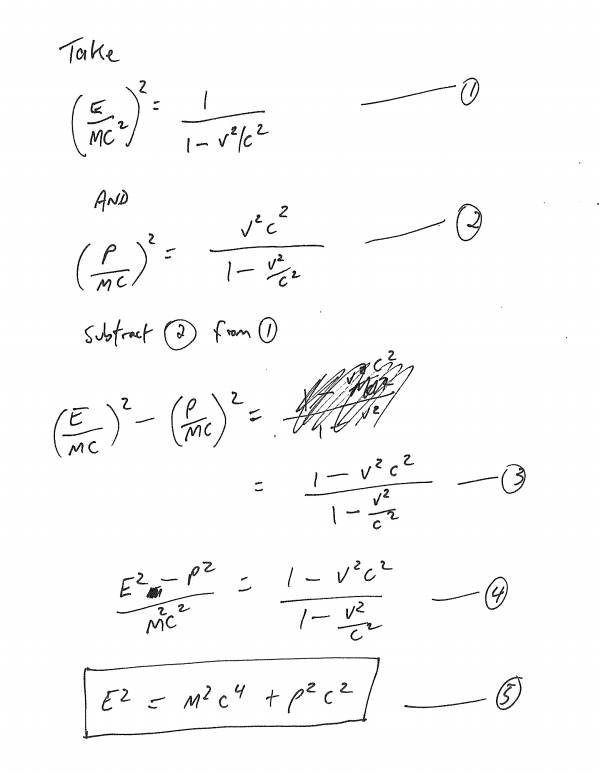 Take
(E/MC²)² = 1/(1 - v²/c²) ——— ①
AND
(P/MC)² = v²c²/(1 - v²/c²) ——— ②
Subtract ② from ①
(E/MC)² - (P/MC)² =
= (1 - v²c²)/(1 - v²/c²) — ③
(E² - P²)/(M²C²) = (1 - v²c²)/(1 - v²/c²) — ④
E² = M²C⁴ + P²C² — ⑤